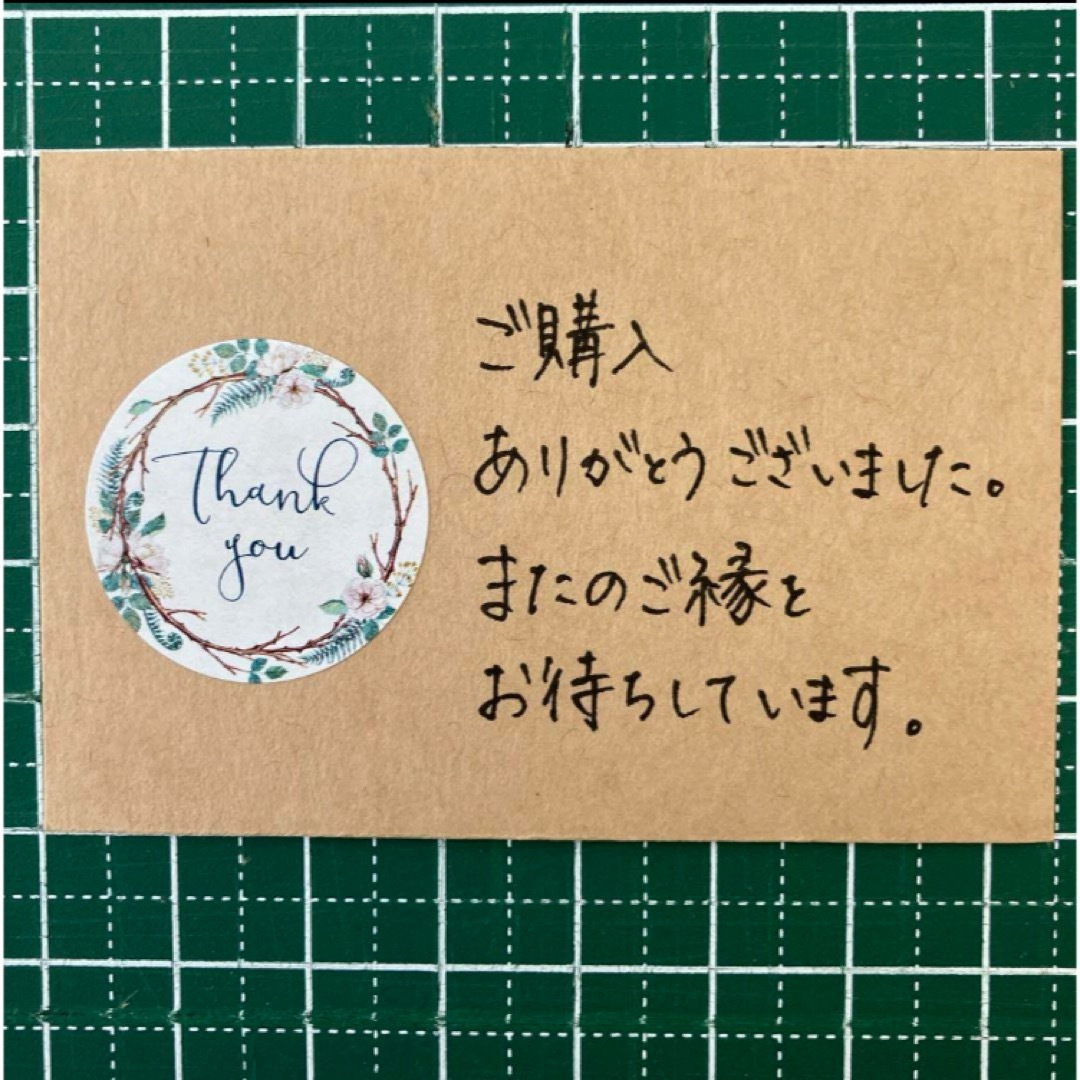 Thank
you
ご購入
ありがとうございました。
またのご縁を
お待ちしています。